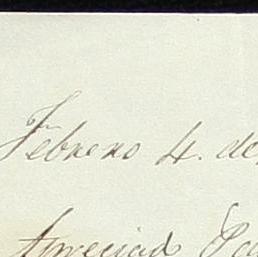 Febrero 4. de
Apreciad